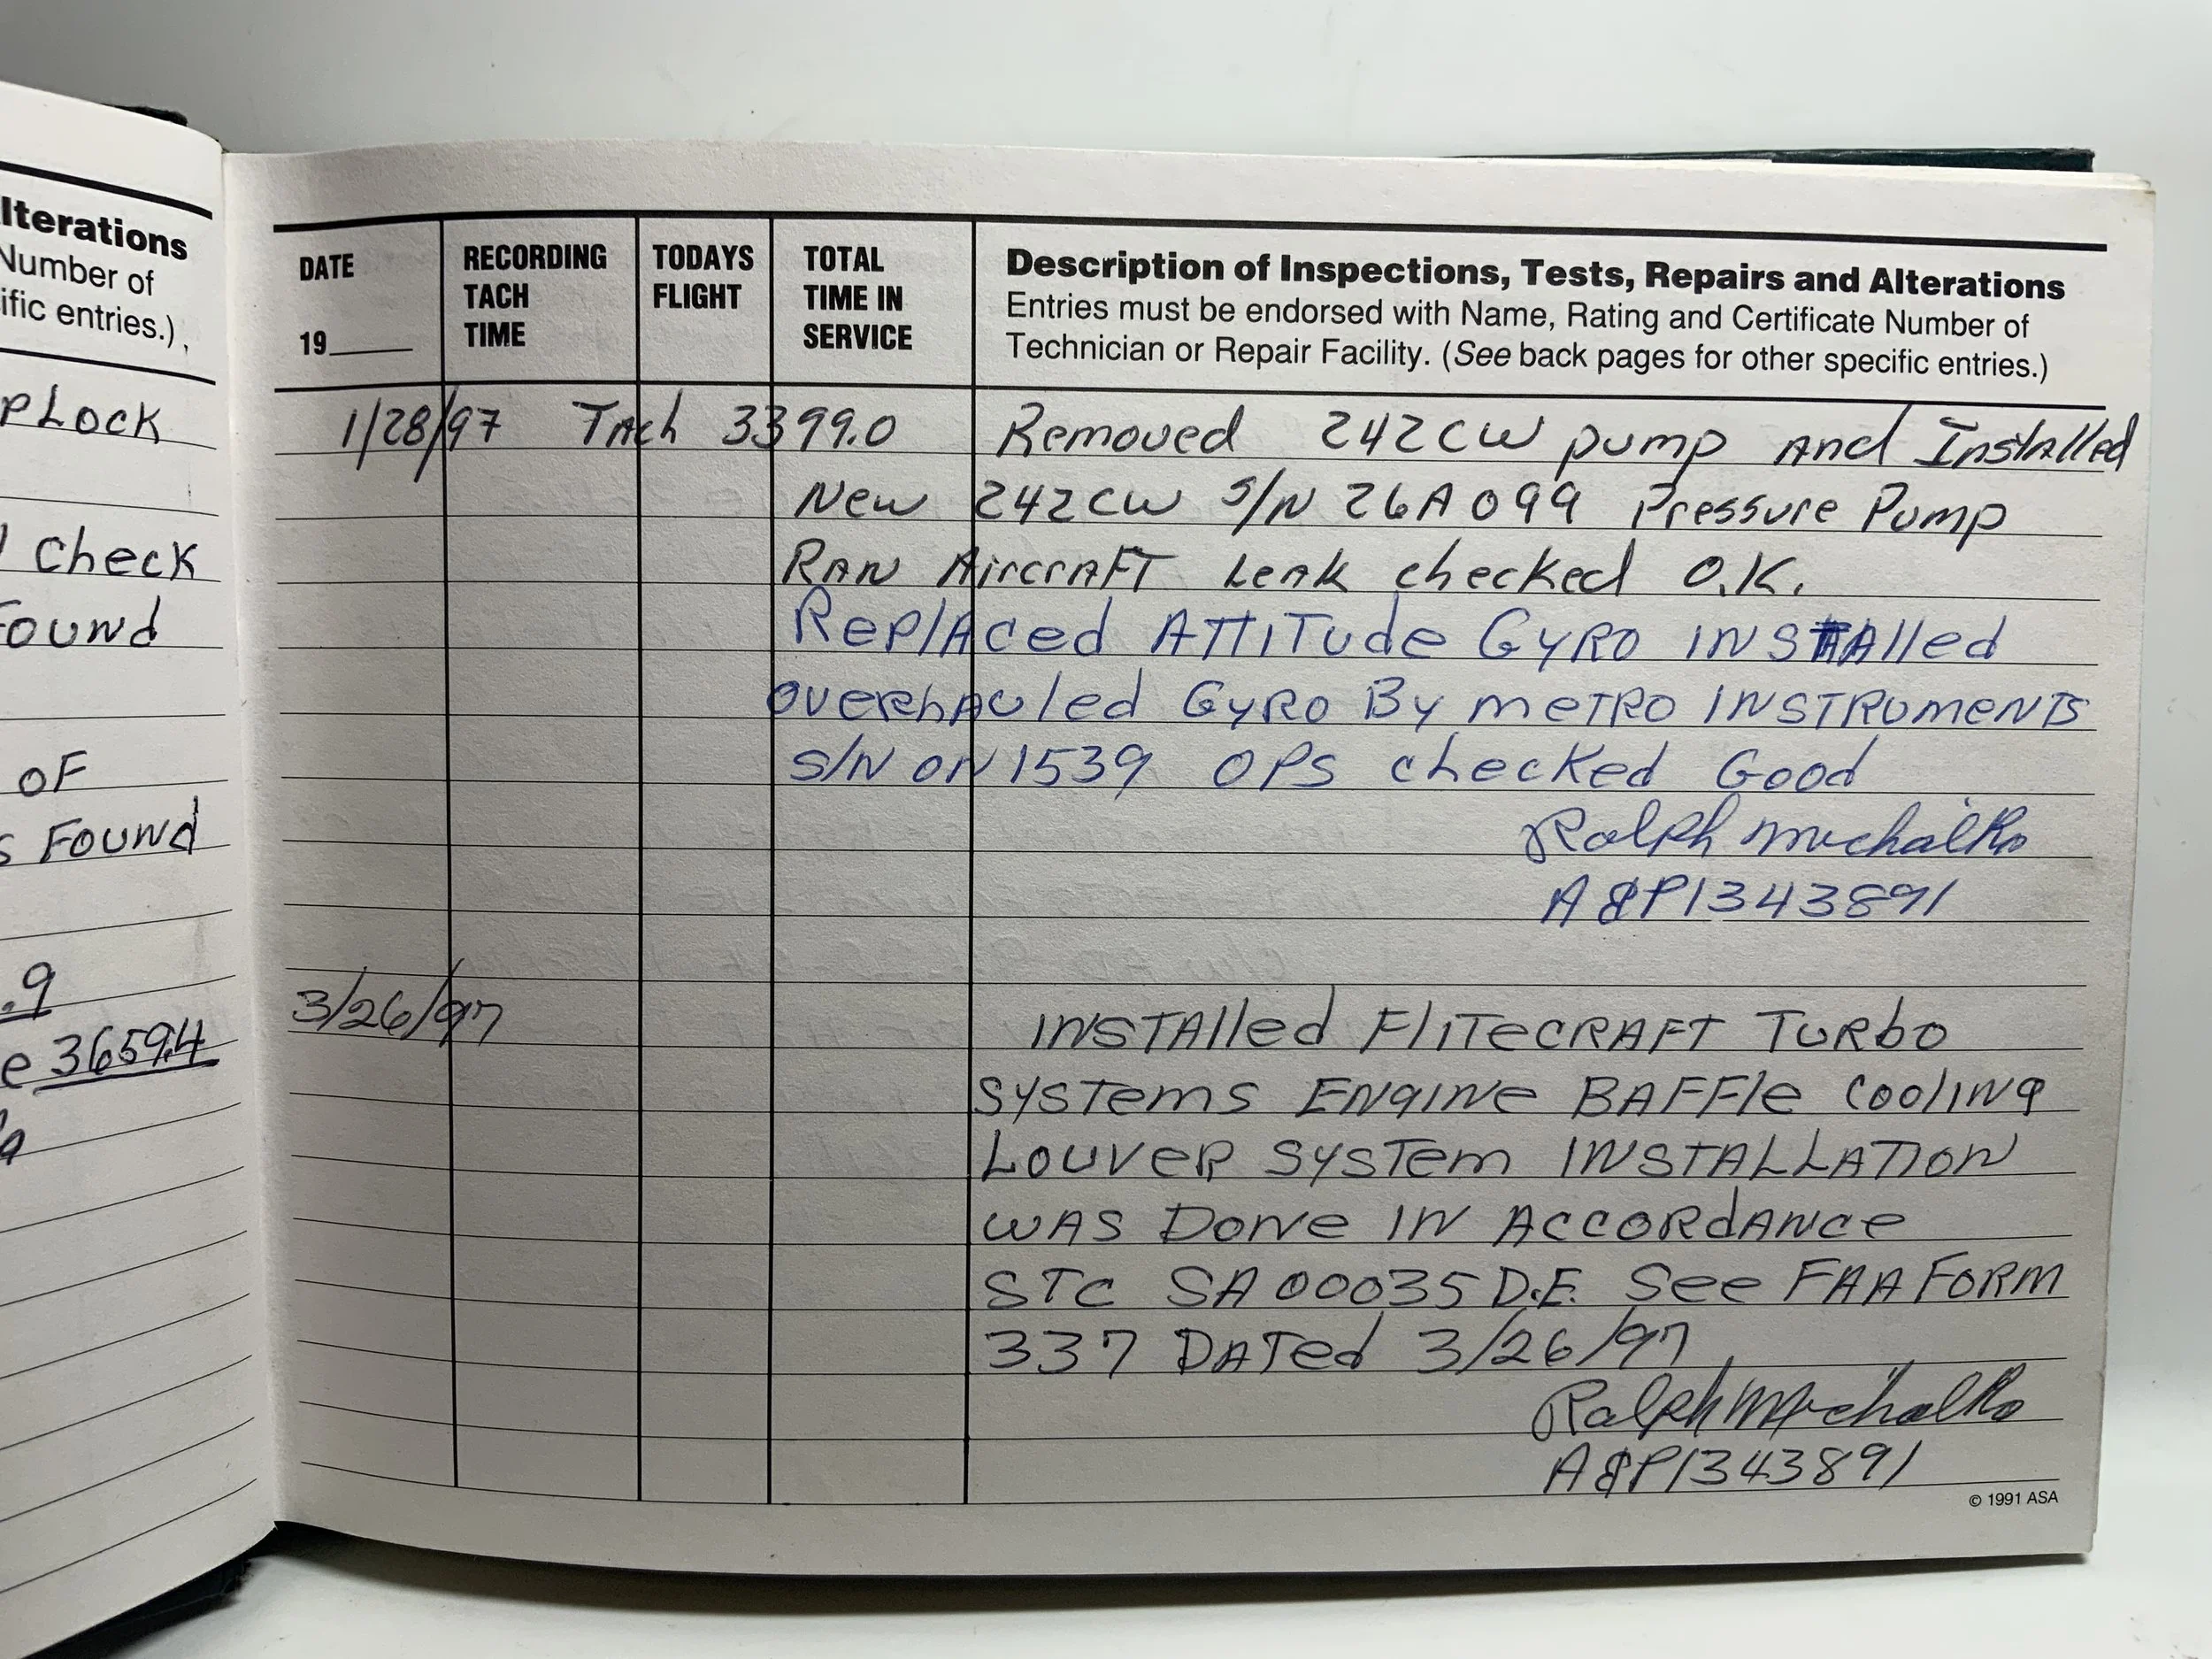 lterations
Number of
ific entries.)
PLOCK
Check
FOUND
OF
S FOUND
.9
e 3659.4
DATE
19____
RECORDING
TACH
TIME
TODAYS
FLIGHT
TOTAL
TIME IN
SERVICE
Description of Inspections, Tests, Repairs and Alterations
Entries must be endorsed with Name, Rating and Certificate Number of
Technician or Repair Facility. (See back pages for other specific entries.)
1/28/97 TAch 3399.0 Removed 242CW pump And Installed
New 242CW S/N 26A099 Pressure Pump
RAN AircrAFT LeAk checked O.K.
RePlAced ATTITude GYRO INSTAlled
overhAuled GYRO By meTRO INSTRumeNTS
S/N ON1539 OPS checked Good
Ralph Michalko
A&P1343891
3/26/97 INSTAlled FliTeCRAFT TuRbo
SySTems ENgINe BAFFle CoolINg
LouveR SySTem INSTALLATION
WAS DoNe IN AccoRdANce
STC SA00035D.E. See FAA FoRm
337 DATed 3/26/97
Ralph Michalko
A&P1343891
© 1991 ASA